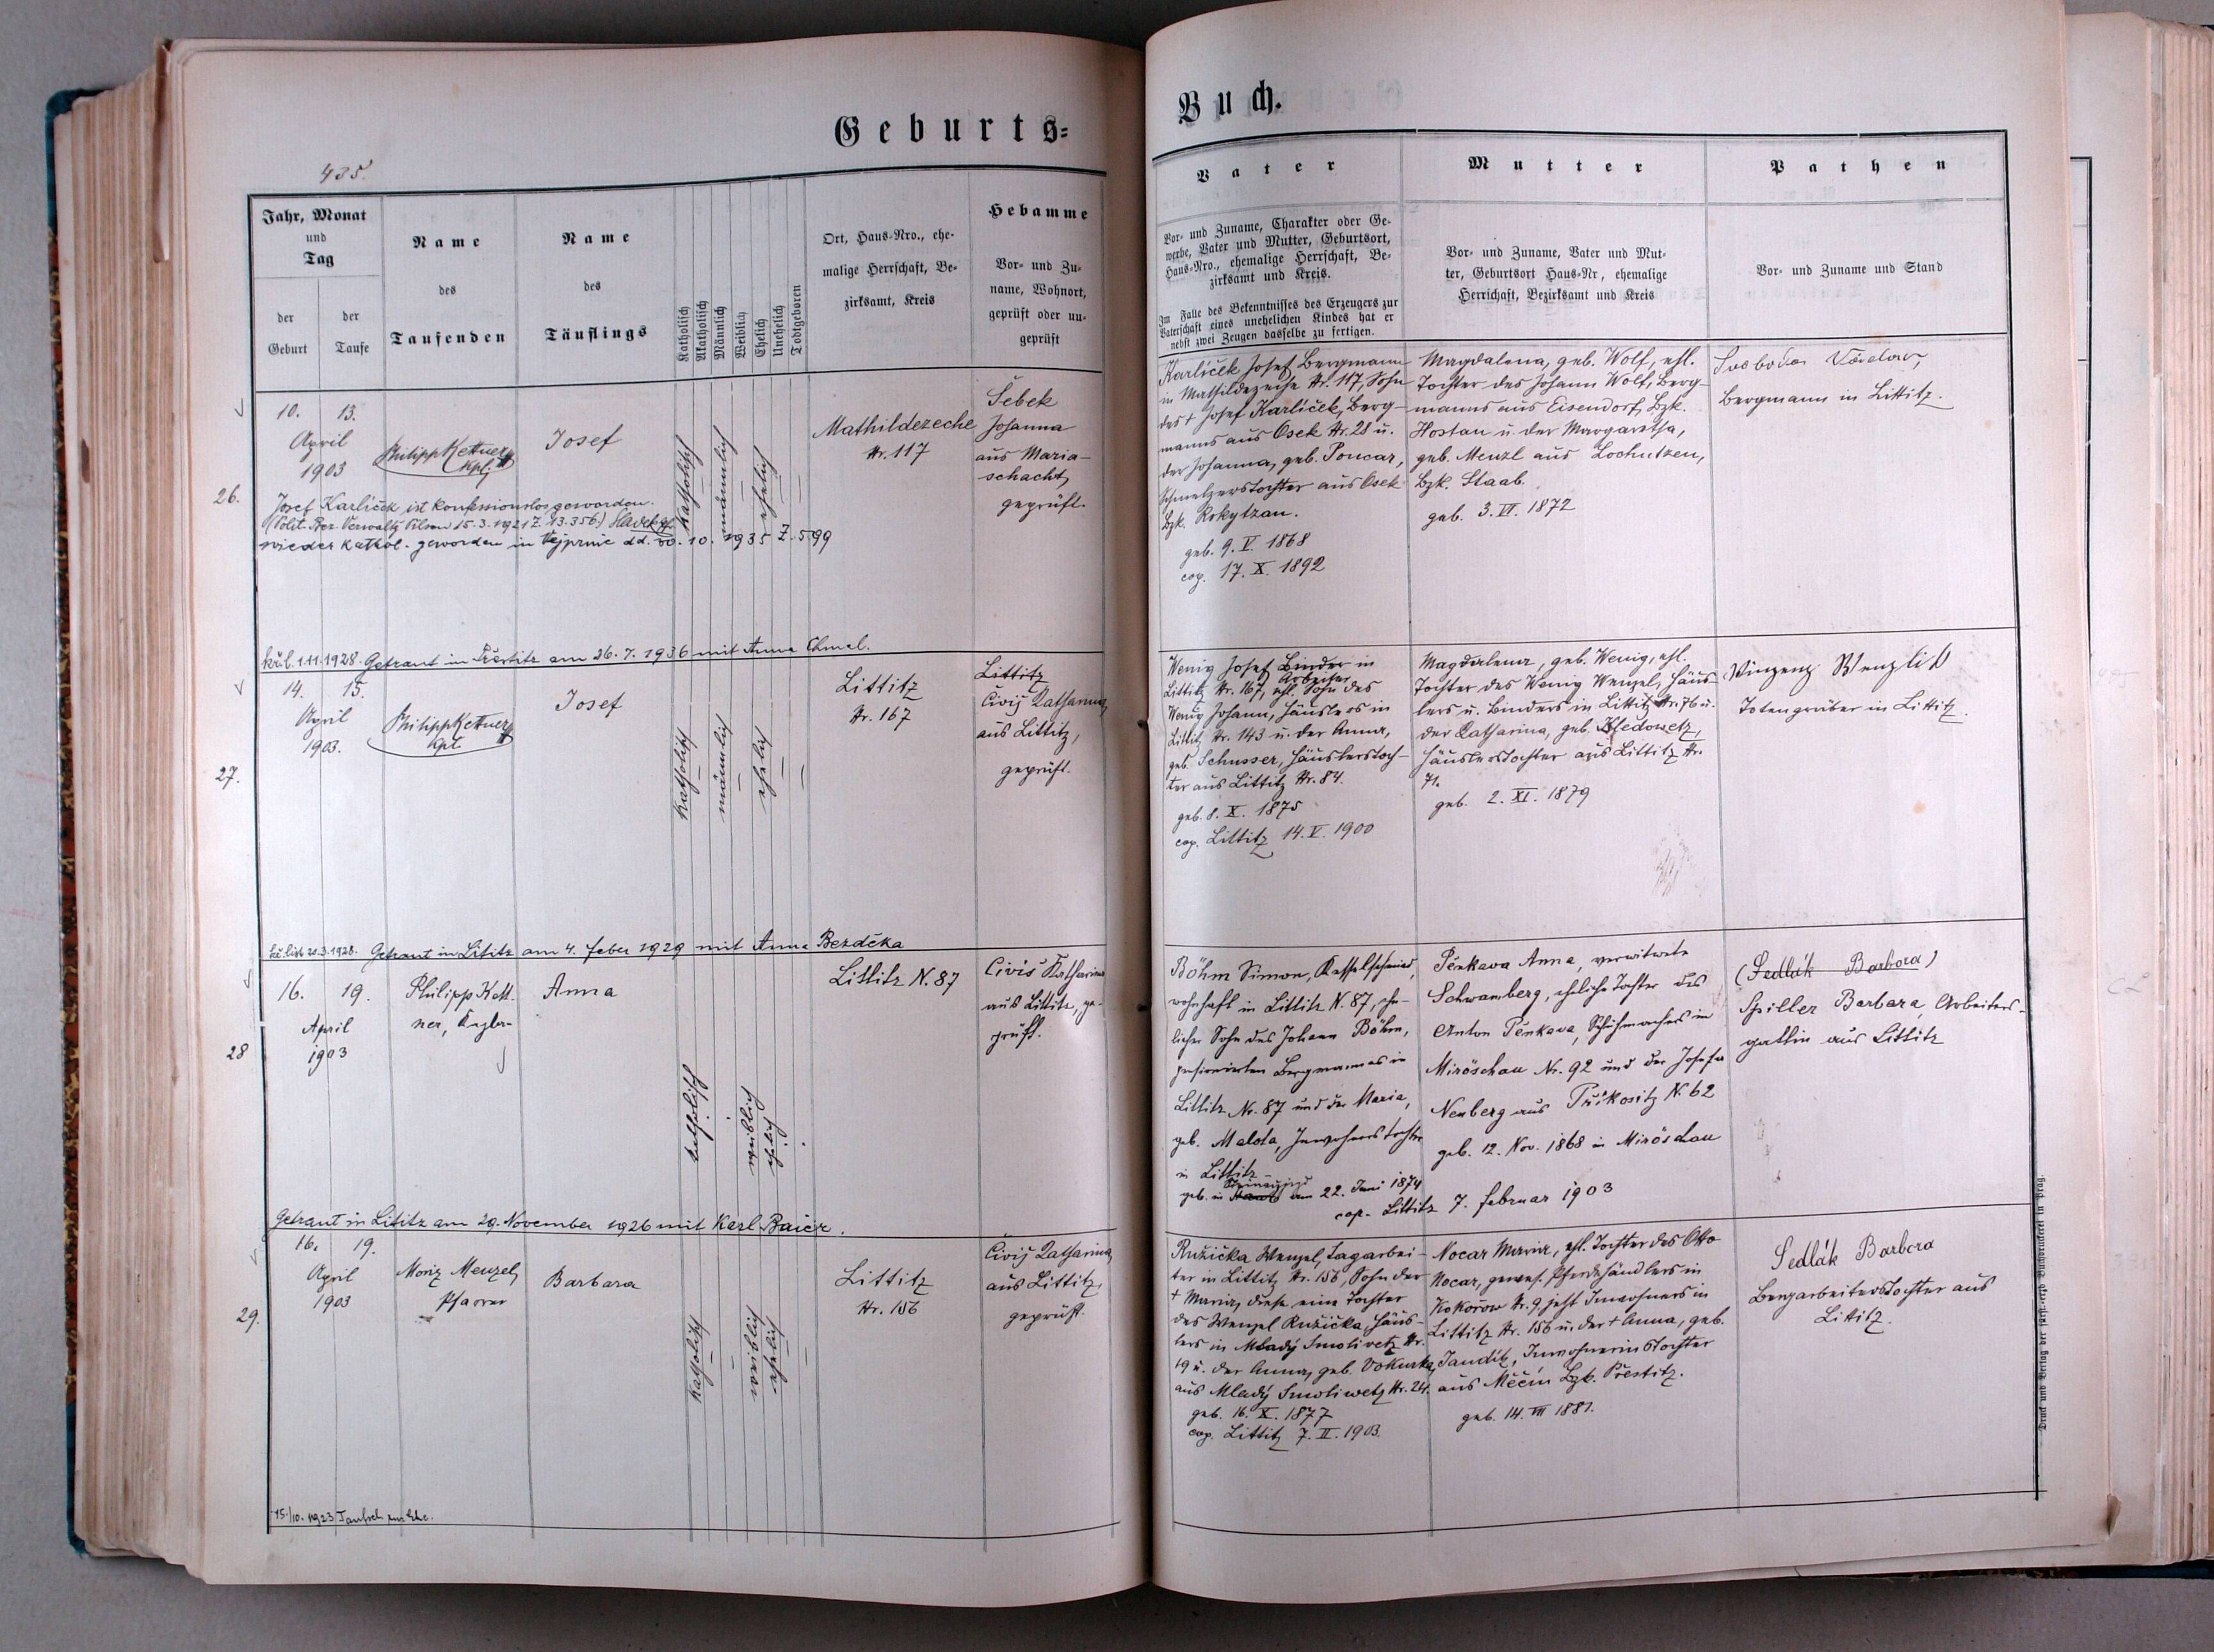 Geburts=
Buch.
435.
Jahr, Monat
und
Tag
der
Geburt
der
Taufe
Name
des
Taufenden
Name
des
Täuflings
Katholisch
Akatholisch
Männlich
Weiblich
Ehelich
Unehelich
Todtgeboren
Ort, Haus-Nro., ehe-
malige Herrschaft, Be-
zirksamt, Kreis
Hebamme
Vor- und Zu-
name, Wohnort,
geprüft oder un-
geprüft
Vater
Vor- und Zuname, Charakter oder Ge-
werbe, Vater und Mutter, Geburtsort,
Haus-Nro., ehemalige Herrschaft, Be-
zirksamt und Kreis.
Im Falle des Bekenntnisses des Erzeugers zur
Vaterschaft eines unehelichen Kindes hat er
nebst zwei Zeugen dasselbe zu fertigen.
Mutter
Vor- und Zuname, Vater und Mut-
ter, Geburtsort Haus-Nr, ehemalige
Herrschaft, Bezirksamt und Kreis
Pathen
Vor- und Zuname und Stand
26.
10. 13.
April
1903
Philipp Kettner
Kpl.
Josef
katholisch
männlich
ehelich
Mathildezeche
Nr. 117
Šebek
Johanna
aus Maria-
schacht,
geprüft.
Josef Karlíček ist konfessionslos geworden.
(Polit. Bez. Verwaltg Pilsen 15.3.1921 Z. 13.356.)
wieder kathol. geworden in Vejprnic dd. 30.10.1935 Z. 599
Getraut in am 26.7.1936 mit Anna Chmel.
Karlíček Josef Bergmann
in Mathildezeche Nr. 117, Sohn
des † Josef Karlíček, Berg-
manns aus Osek Nr. 28 u.
der Johanna, geb. Poncar,
Schmelzerstochter aus Osek
Bzk. Rokytzan.
geb. 9. V. 1868
cop. 17. X. 1892
Magdalena, geb. Wolf, ehl.
Tochter des Johann Wolf, Berg-
manns aus Eisendorf, Bzk.
Hostau u. der Margaretha,
geb. Menzl aus Lochutzen,
Bzk. Staab.
geb. 3. VI. 1872
Svoboda Václav,
Bergmann in Littitz.
27.
14. 15.
April
1903.
Philipp Kettner
Kpl.
Josef
katholisch
männlich
ehelich
Littitz
Nr. 167
Littitz
Čiviš Katharina,
aus Littitz,
geprüft.
Getraut in Lititz am 4. Feber 1929 mit Anna Bezděka
Wenig Josef Binder in
Arbeiter
Littitz Nr. 167, ehl. Sohn des
Wenig Johann, Häuslers in
Littitz Nr. 143 u. der Anna,
geb. Schusser, Häuslerstoch-
ter aus Littitz Nr. 84.
geb. 8. X. 1875
cop. Littitz 14. V. 1900
Magdalena, geb. Wenig, ehl.
Tochter des Wenig Wenzel, Häus-
lers u. Binders in Littitz Nr. 76 u.
der Katharina, geb.
Häuslerstochter aus Littitz Nr.
71.
geb. 2. XI. 1879
Vinzenz Wenzlik
Totengräber in Littitz.
28
16. 19.
April
1903
Philipp Kett-
ner, Kaplan
Anna
katholisch
weiblich
ehelich
Littitz N. 87
Čiviš Katharina
aus Littitz, ge-
prüft.
Getraut in Lititz am 29. November 1926 mit Karl Baier.
Böhm Simon, Kesselschmied,
wohnhaft in Littitz N. 87, ehe-
licher Sohn des Johann Böhm,
pensionierten Bergmannes in
Littitz Nr. 87 und der Maria,
geb. Malota, Inwohnerstochter
in Littitz
geb. in am 22. Juni 1874
cop. Littitz 7. Februar 1903
Pěnkava Anna, verwitwete
Schwamberg, eheliche Tochter des
Anton Pěnkava, Schuhmachers in
Miröschau Nr. 92 und der Josefa
Neuberg aus Příkositz N. 62
geb. 12. Nov. 1868 in Miröschau
(Sedlák Barbora)
Spiller Barbara, Arbeiters-
gattin aus Littitz
29.
16. 19.
April
1903
Moriz Menzel,
Pfarrer
Barbara
katholisch
weiblich
ehelich
Littitz
Nr. 156
Čiviš Katharina,
aus Littitz,
geprüft.
15./10. 1923 Taufsch. zur Ehe.
Ružička Wenzel, Tagarbei-
ter in Littitz Nr. 156, Sohn der
† Maria, diese eine Tochter
des Wenzel Ružička, Häus-
lers in Mladý Smolivetz Nr.
19 u. der Anna, geb. Vokurka,
aus Mladý Smoliwetz Nr. 24.
geb. 16. X. 1877
cop. Littitz 7. II. 1903.
Nocar Maria, ehl. Tochter des Otto
Nocar, gewes. Pferdehändlers in
Kokořow Nr. 9, jetzt Inwohners in
Littitz Nr. 156 u. der † Anna, geb.
Jandík, Inwohnerinstochter
aus Měčín Bzk. Přestitz.
geb. 14. VII 1881.
Sedlák Barbora
Bergarbeiterstochter aus
Lititz.
Druck und Verlag der fürst-erzb. Buchdruckerei in Prag.